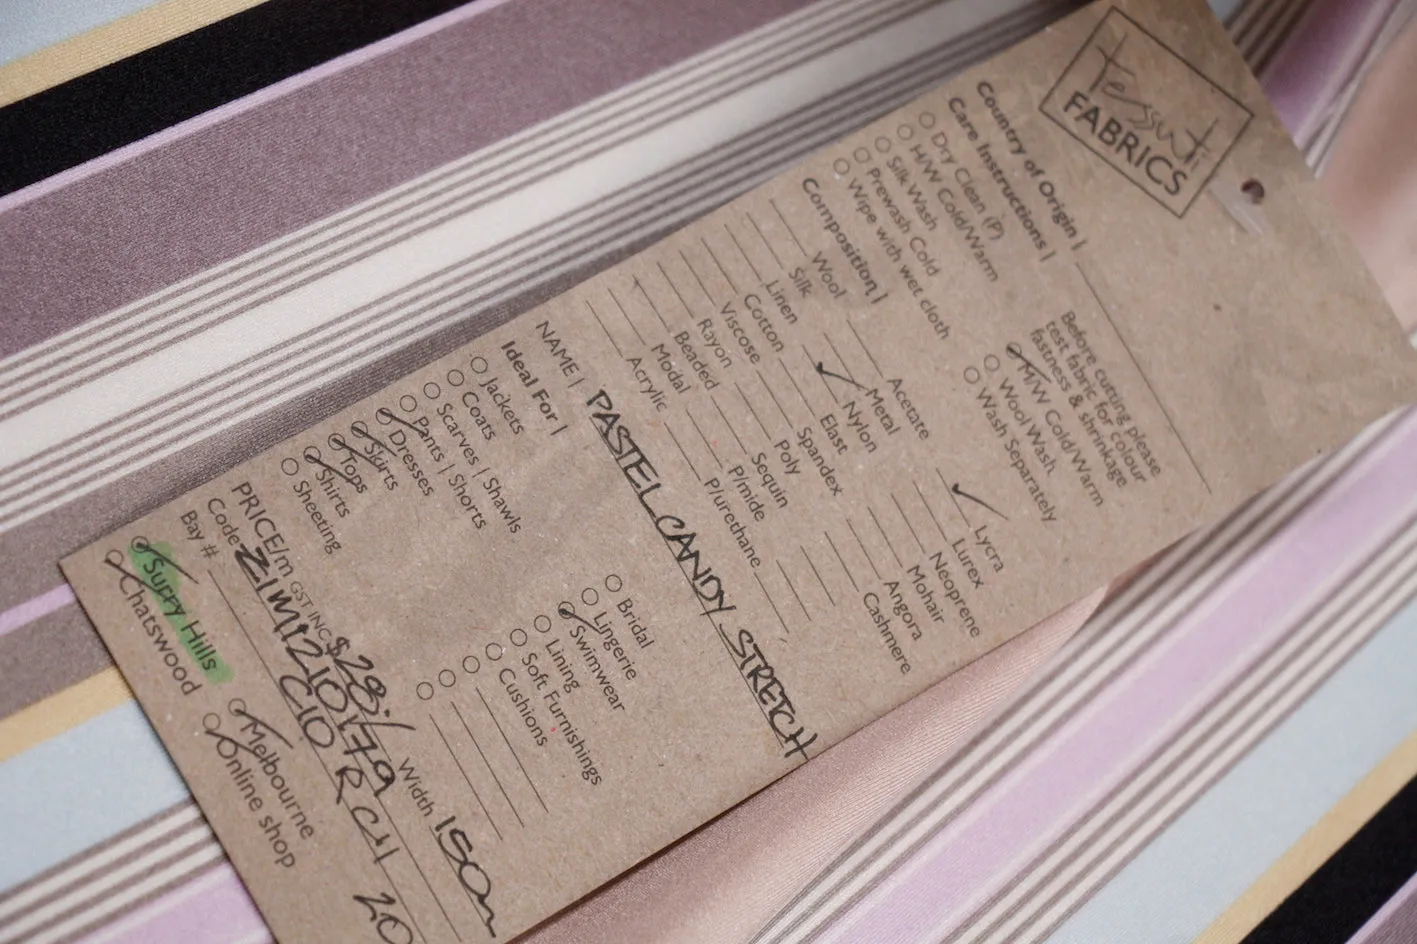 Tessuti
FABRICS
Country of Origin |
Care Instructions |
Dry Clean (P)
H/W Cold/Warm
Silk Wash
Prewash Cold
Wipe with wet cloth
Before cutting please
test fabric for colour
fastness & shrinkage
M/W Cold/Warm
Wool Wash
Wash Separately
Composition |
Wool
Silk
Linen
Cotton
Viscose
Rayon
Beaded
Modal
Acrylic
Acetate
Metal
✓ Nylon
Elast
Spandex
Poly
Sequin
P/mide
P/urethane
✓ Lycra
Lurex
Neoprene
Mohair
Angora
Cashmere
NAME | PASTEL CANDY STRETCH
Ideal For |
Jackets
Coats
Scarves | Shawls
Pants | Shorts
Dresses
Skirts
Tops
Shirts
Sheeting
Bridal
Lingerie
Swimwear
Lining
Soft Furnishings
Cushions
PRICE/m GST INC $28./ Width 150m
Code
Bay # C10
Surry Hills
Chatswood
Melbourne
Online shop